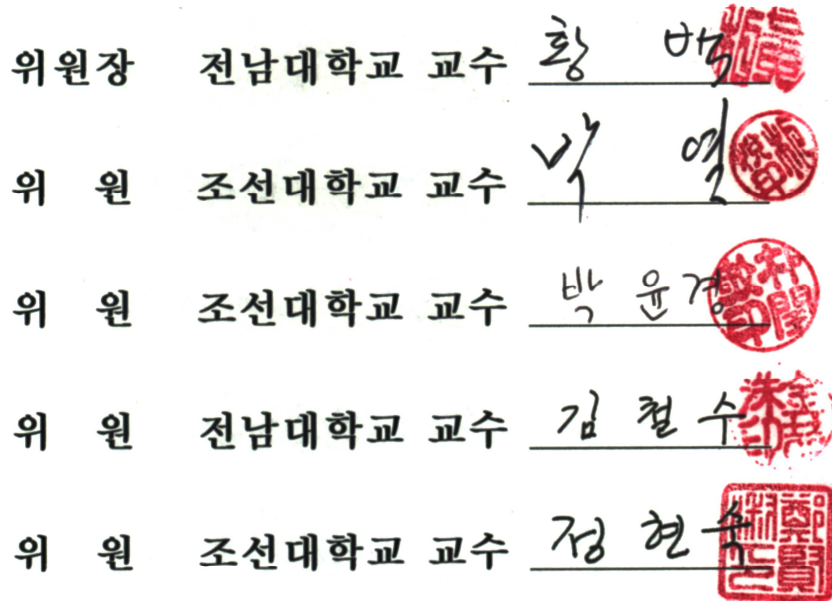 위원장 전남대학교 교수 황 백
위 원 조선대학교 교수 박 열
위 원 조선대학교 교수 박 윤 경
위 원 전남대학교 교수 김 철 수
위 원 조선대학교 교수 정 현 숙